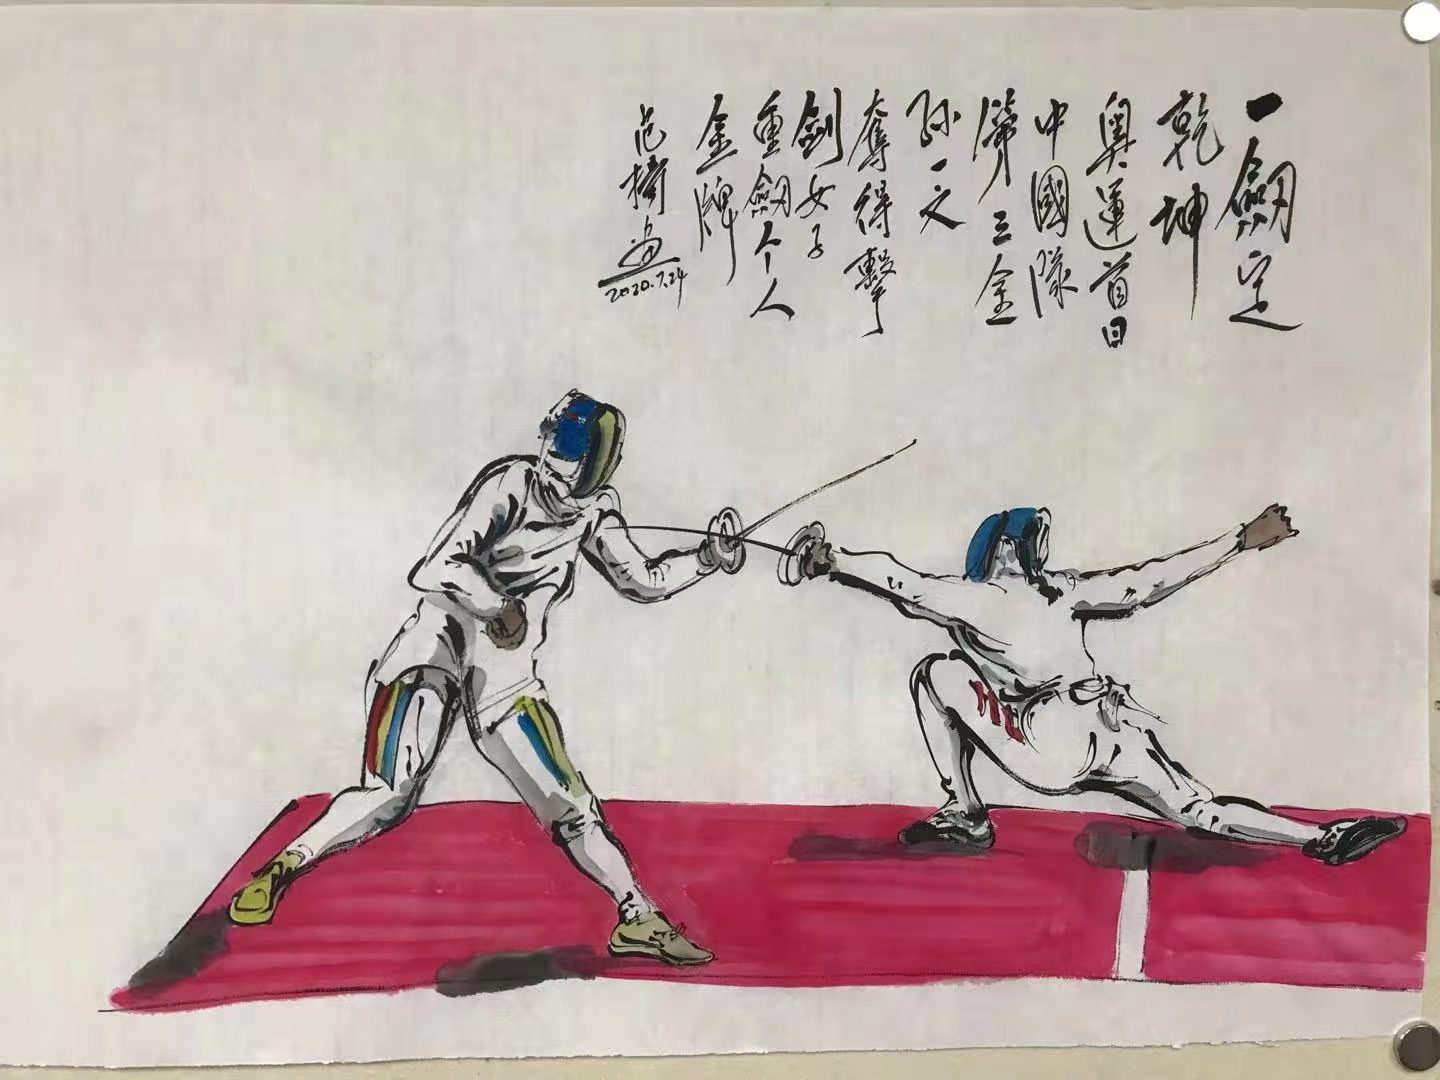 一劒定
乾坤
奧運首日
中國隊
三金
孫一文
奪得擊
劍女子
重劒个人
金牌
范 画
2020.7.24